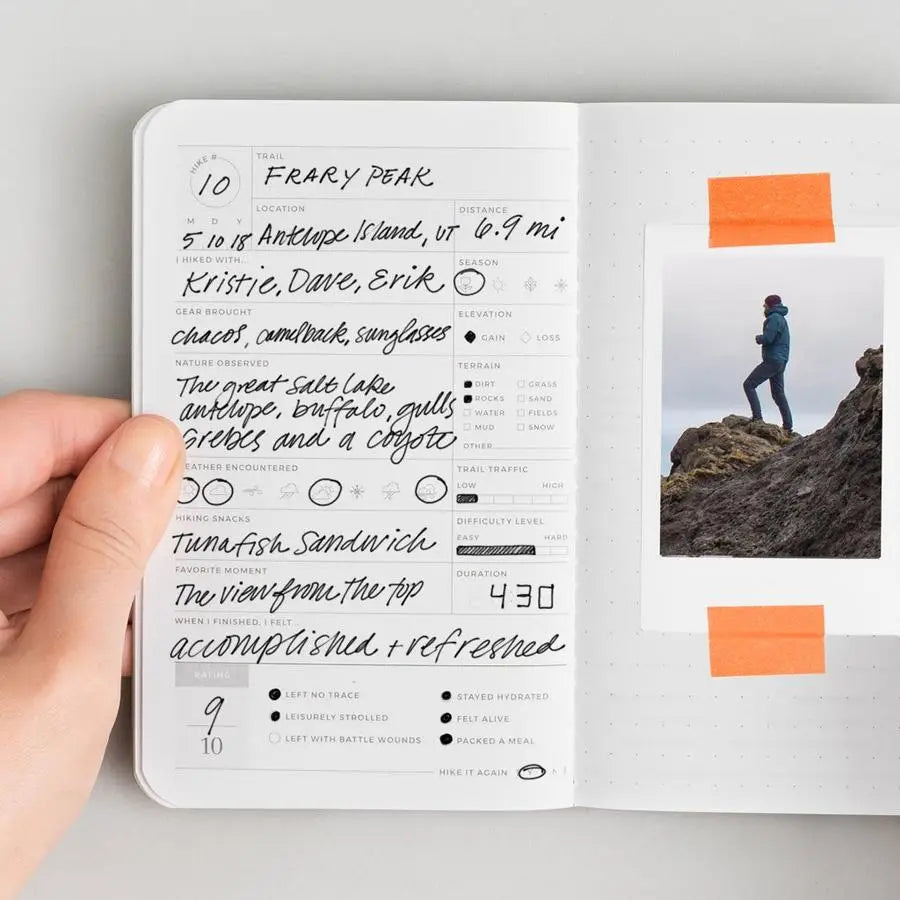 HIKE #
10
TRAIL
FRARY PEAK
M D Y
5 10 18
LOCATION
Antelope Island, UT
DISTANCE
6.9 mi
I HIKED WITH...
Kristie, Dave, Erik
SEASON
GEAR BROUGHT
chacos, camelback, sunglasses
ELEVATION
GAIN LOSS
NATURE OBSERVED
The great Salt Lake
antelope, buffalo, gulls
Grebes and a coyote
TERRAIN
DIRT GRASS
ROCKS SAND
WATER FIELDS
MUD SNOW
OTHER
EATHER ENCOUNTERED
TRAIL TRAFFIC
LOW HIGH
HIKING SNACKS
Tunafish Sandwich
DIFFICULTY LEVEL
EASY HARD
FAVORITE MOMENT
The view from the top
DURATION
4:30
WHEN I FINISHED, I FELT...
accomplished + refreshed
RATING
9
10
LEFT NO TRACE
LEISURELY STROLLED
LEFT WITH BATTLE WOUNDS
STAYED HYDRATED
FELT ALIVE
PACKED A MEAL
HIKE IT AGAIN Y N